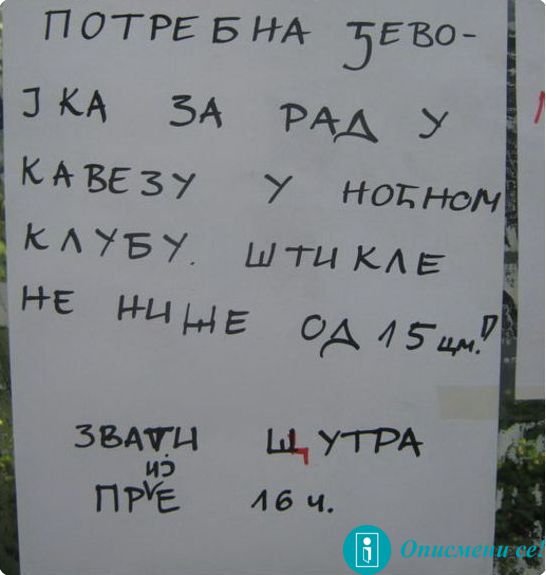 ПОТРЕБНА ЂЕВО-
ЈКА ЗА РАД У
КАВЕЗУ У НОЋНОМ
КЛУБУ. ШТИКЛЕ
НЕ НИЖЕ ОД 15 цм.!
ЗВАТИ Щ УТРА
ПРИЈЕ 16 ч.
Описмени се!